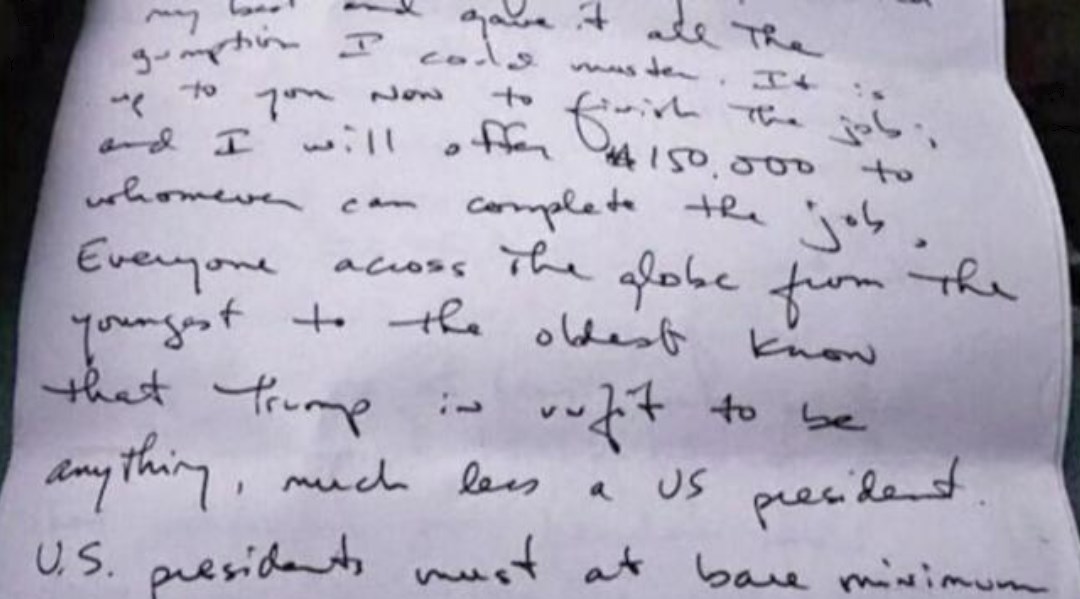 my best and gave it all the
gumption I could muster. It is
up to you now to finish the job;
and I will offer $150,000 to
whomever can complete the job.
Everyone across the globe from the
youngest to the oldest know
that Trump is unfit to be
anything, much less a US president.
U.S. presidents must at bare minimum